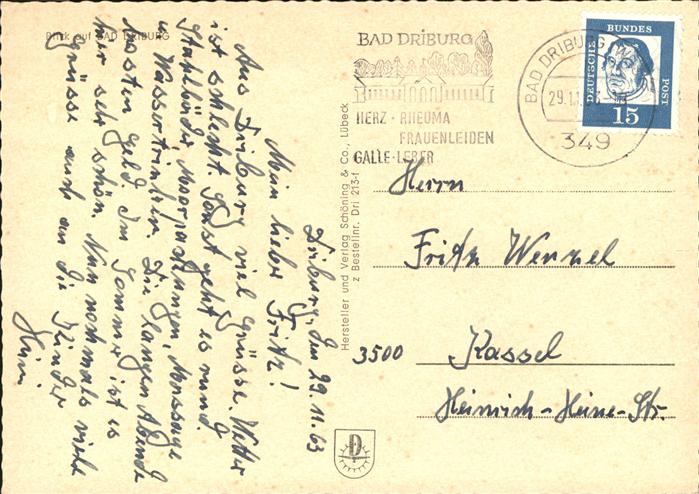 Blick auf BAD DRIBURG
Driburg, den 29.11.63
Mein lieber Fritz!
Aus Driburg viel Grüsse. Wetter
ist schlecht. Sonst geht es rund
Stahlbäder, Moorpackungen, Massage
u. Wassertrinken. Die langen Abende
kosten Geld. Im Sommer ist es
hier sehr schön. Nun nochmals viele
Grüsse auch an die Kinder
Heini
Hersteller und Verlag Schöning & Co., Lübeck
z Bestellnr. Dri 213-1
BAD DRIBURG
HERZ · RHEUMA
FRAUENLEIDEN
GALLE · LEBER
BAD DRIBURG
29.11
349
DEUTSCHE
BUNDES
POST
15
Herrn
Fritz Wenzel
3500 Kassel
Heinrich-Heine-Str.
D